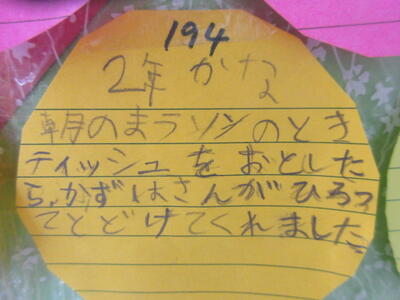 194
2年 かな
朝のまラソンのとき
ティッシュをおとした
ら、かずはさんがひろっ
てとどけてくれました